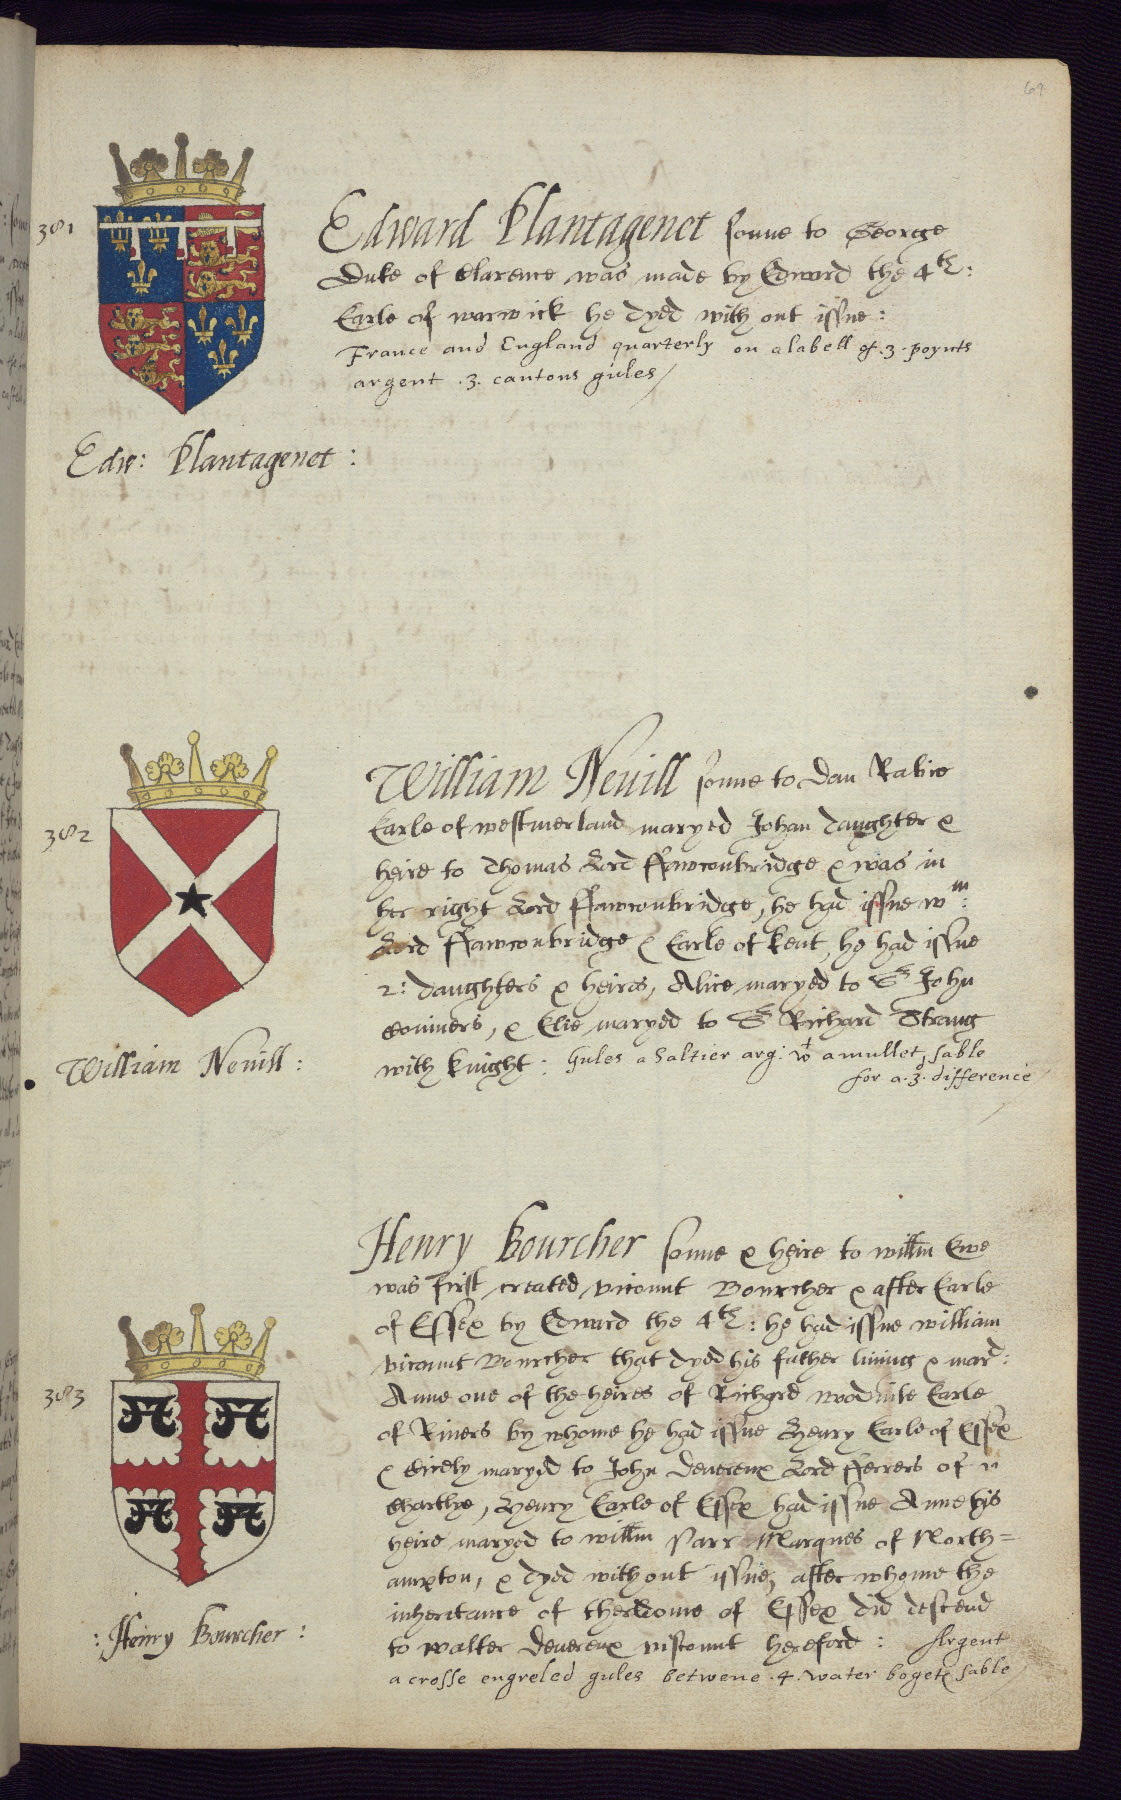 69
381
Edward Plantagenet sonne to George
Duke of Clarence was made by Edward the 4th:
Earle of warwick he dyed with out issue:
France and England quarterly on a labell of .3. poynts
argent .3. cantons gules
Edw: Plantagenet:
William Nevill sonne to Dan Rafe
382
Earle of westmerland maryed Johan daughter &
heire to Thomas Lord ffawconbridge & was in
her right Lord ffawconbridge, he had issue wm:
Lord ffawconbridge & Earle of kent, he had issue
2: daughters & heires, Alice maryed to Sr John
Coniners, & Elie maryed to Sr Richard Strang
with knight: Gules a Saltier arg: wt a mullet sable
for a .3d. difference
William Nevill:
Henry Bourcher sonne & heire to willm Ewe
was first created vicount Bourcher & after Earle
of Essex by Edward the 4th: he had issue william
vicount Bourcher that dyed his father living & mard:
383
Anne one of the heires of Richard woodvile Earle
of Rivers by whome he had issue Henry Earle of Essex
& Cicely maryed to John Devereux Lord fferrers of
Chartley, Henry Earle of Essex had issue Anne his
heire maryed to willm Parr Marques of North=
ampton, & dyed without issue, after whome the
inheritance of therldome of Essex did descend
to walter Devereux viscount hereford: Argent
a crosse engreled gules betwene .4. water bogets sable
: Henry Bourcher :